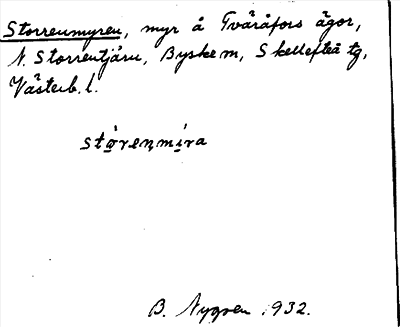 Storrenmyren, myr å Tvåråfors ägor,
N. Storrentjärn, Byske m, Skellefteå tg,
Västerb. l.
stòrenmíra
B. Nygren 1932.